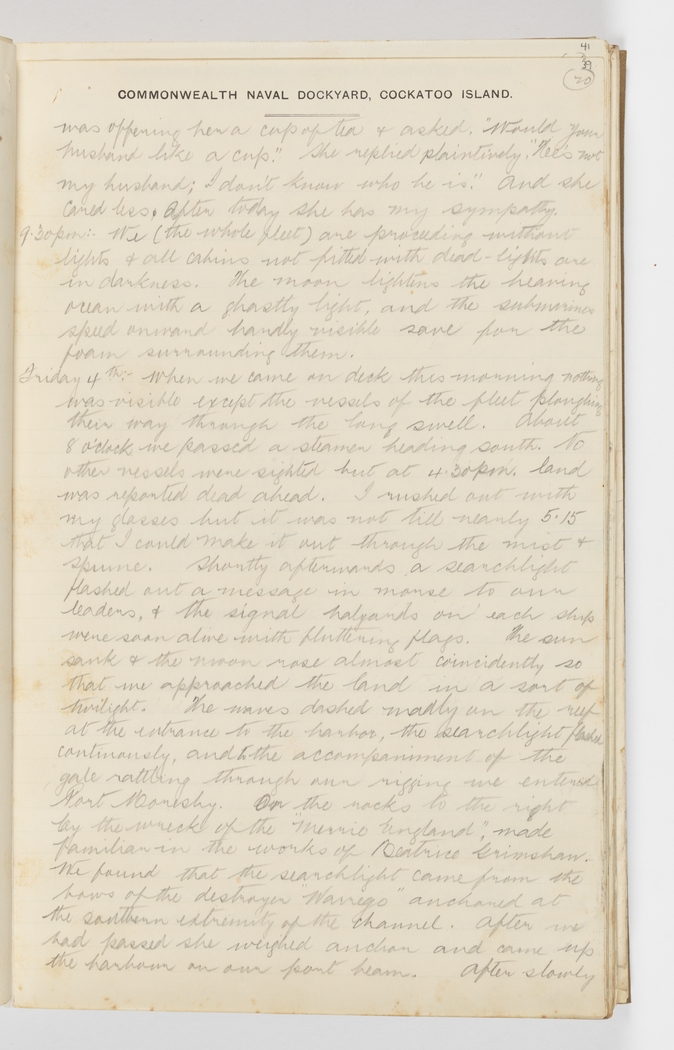 41
39
20
COMMONWEALTH NAVAL DOCKYARD, COCKATOO ISLAND.
was offering her a cup of tea & asked. "Would your
husband like a cup." She replied plaintively, "He's not
my husband; I don't know who he is." And she
cared less. After today she has my sympathy.
9.30pm:- We (the whole fleet) are proceeding without
lights & all cabins not fitted with dead-lights are
in darkness. The moon lightens the heaving
ocean with a ghastly light, and the submarines
speed onward hardly visible save for the
foam surrounding them.
Friday 4th:- When we came on deck this morning nothing
was visible except the vessels of the fleet ploughing
their way through the long swell. About
8 o'clock we passed a steamer heading south. No
other vessels were sighted but at 4.30pm. land
was reported dead ahead. I rushed out with
my glasses but it was not till nearly 5.15
that I could make it out through the mist &
spume. Shortly afterwards a searchlight
flashed out a message in morse to our
leaders, & the signal halyards on each ship
were soon alive with fluttering flags. The sun
sank & the moon rose almost coincidently so
that we approached the land in a sort of
twilight. The waves dashed madly on the reef
at the entrance to the harbor, the searchlight flashed
continously, and to the accompaniment of the
gale rattling through our rigging we entered
Port Moresby. On the rocks to the right
lay the wreck of the "Merrie England", made
familiar in the works of Beatrice Grimshaw.
We found that the searchlight came from the
bows of the destroyer "Warrego" anchored at
the southern extremity of the channel. After we
had passed she weighed anchor and came up
the harbour on our port beam. After slowly